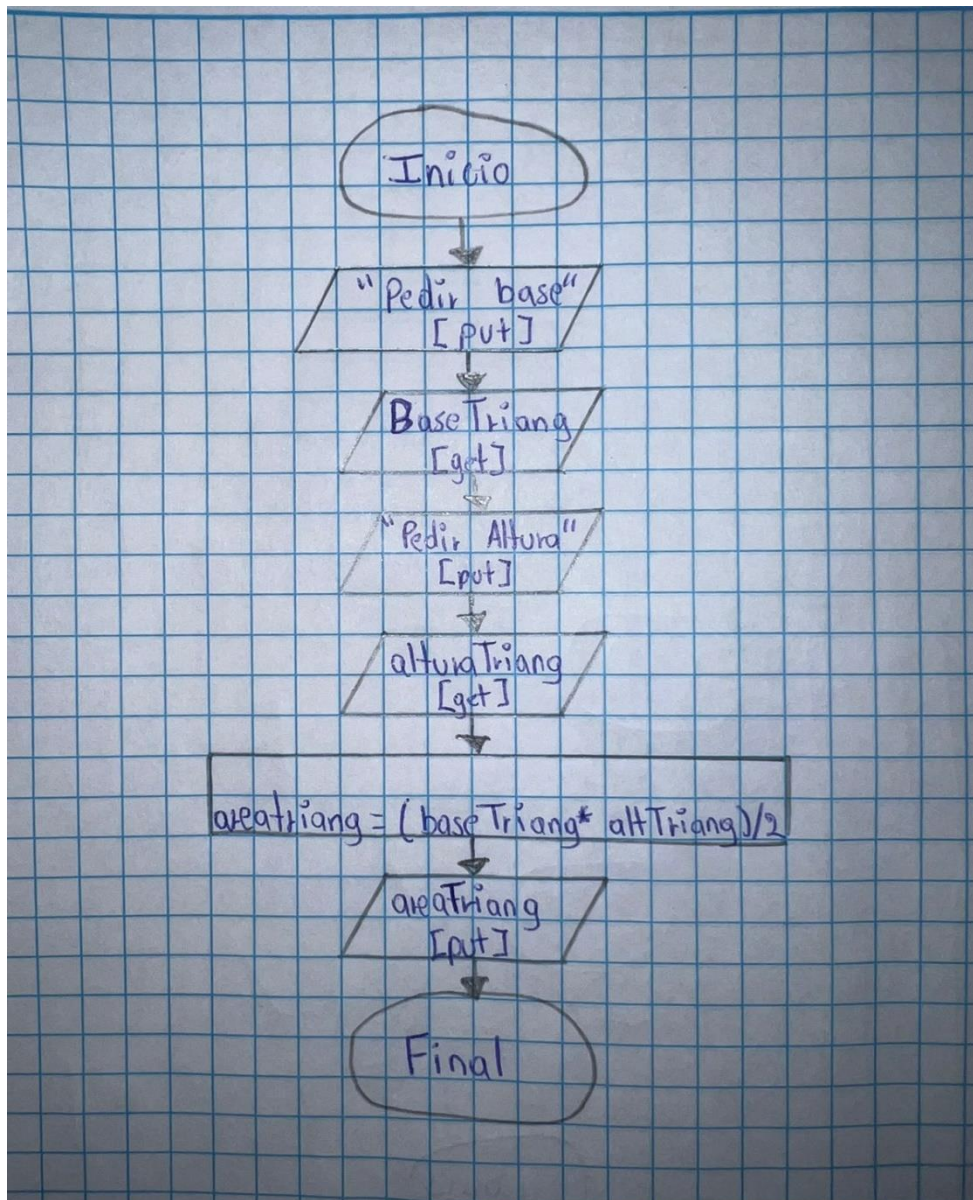 Inicio
"Pedir base"
[put]
BaseTriang
[get]
"Pedir Altura"
[put]
alturaTriang
[get]
areatriang = (baseTriang* altTriang)/2
areaTriang
[put]
Final